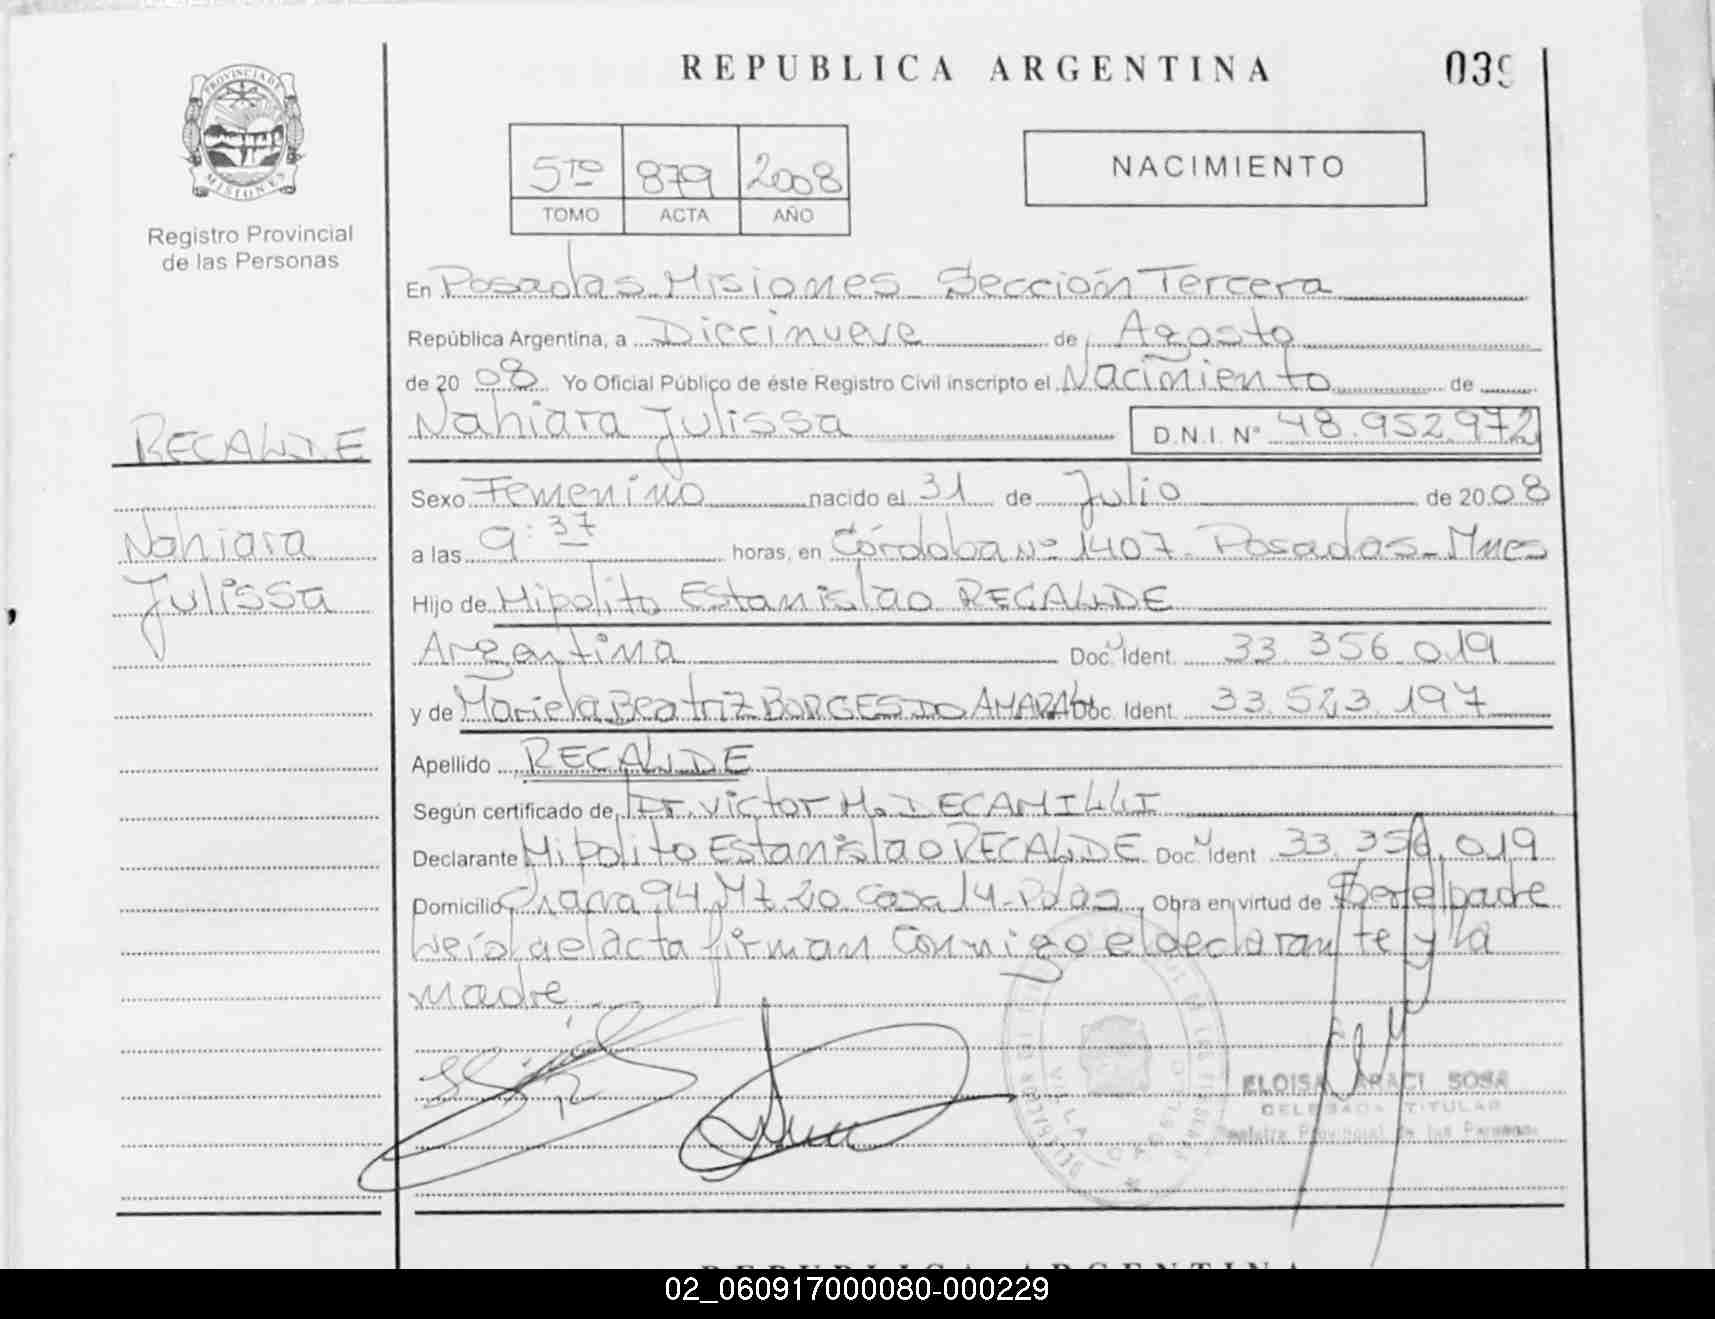 REPUBLICA ARGENTINA
039
PROVINCIA DE MISIONES
Registro Provincial
de las Personas
5to 879 2008
TOMO ACTA AÑO
NACIMIENTO
En Posadas Misiones Sección Tercera
República Argentina, a Diecinueve de Agosto
de 2008 Yo Oficial Público de éste Registro Civil inscripto el Nacimiento de
Nahiara Julissa D.N.I. Nº 48.952.972
RECALDE
Nahiara
Julissa
Sexo Femenino nacido el 31 de Julio de 2008
a las 9:37 horas, en Córdoba Nº 1407 Posadas-Mnes
Hijo de Hipolito Estanislao RECALDE
Argentina Doc. Ident. 33.356.019
y de Mariela Beatriz BORGES DO AMARAL Doc. Ident. 33.523.197
Apellido RECALDE
Según certificado de Dr. Victor M. DECAMILLI
Declarante Hipolito Estanislao RECALDE Doc. Ident 33.356.019
Domicilio Chacra 94 Mz 20 Casa 14-Pdas Obra en virtud de Ser el padre
Leída el acta firman conmigo el declarante y la
madre
ELOISA ARACI SOSA
DELEGADA TITULAR
Registro Provincial de las Personas
REPUBLICA ARGENTINA
02_060917000080-000229